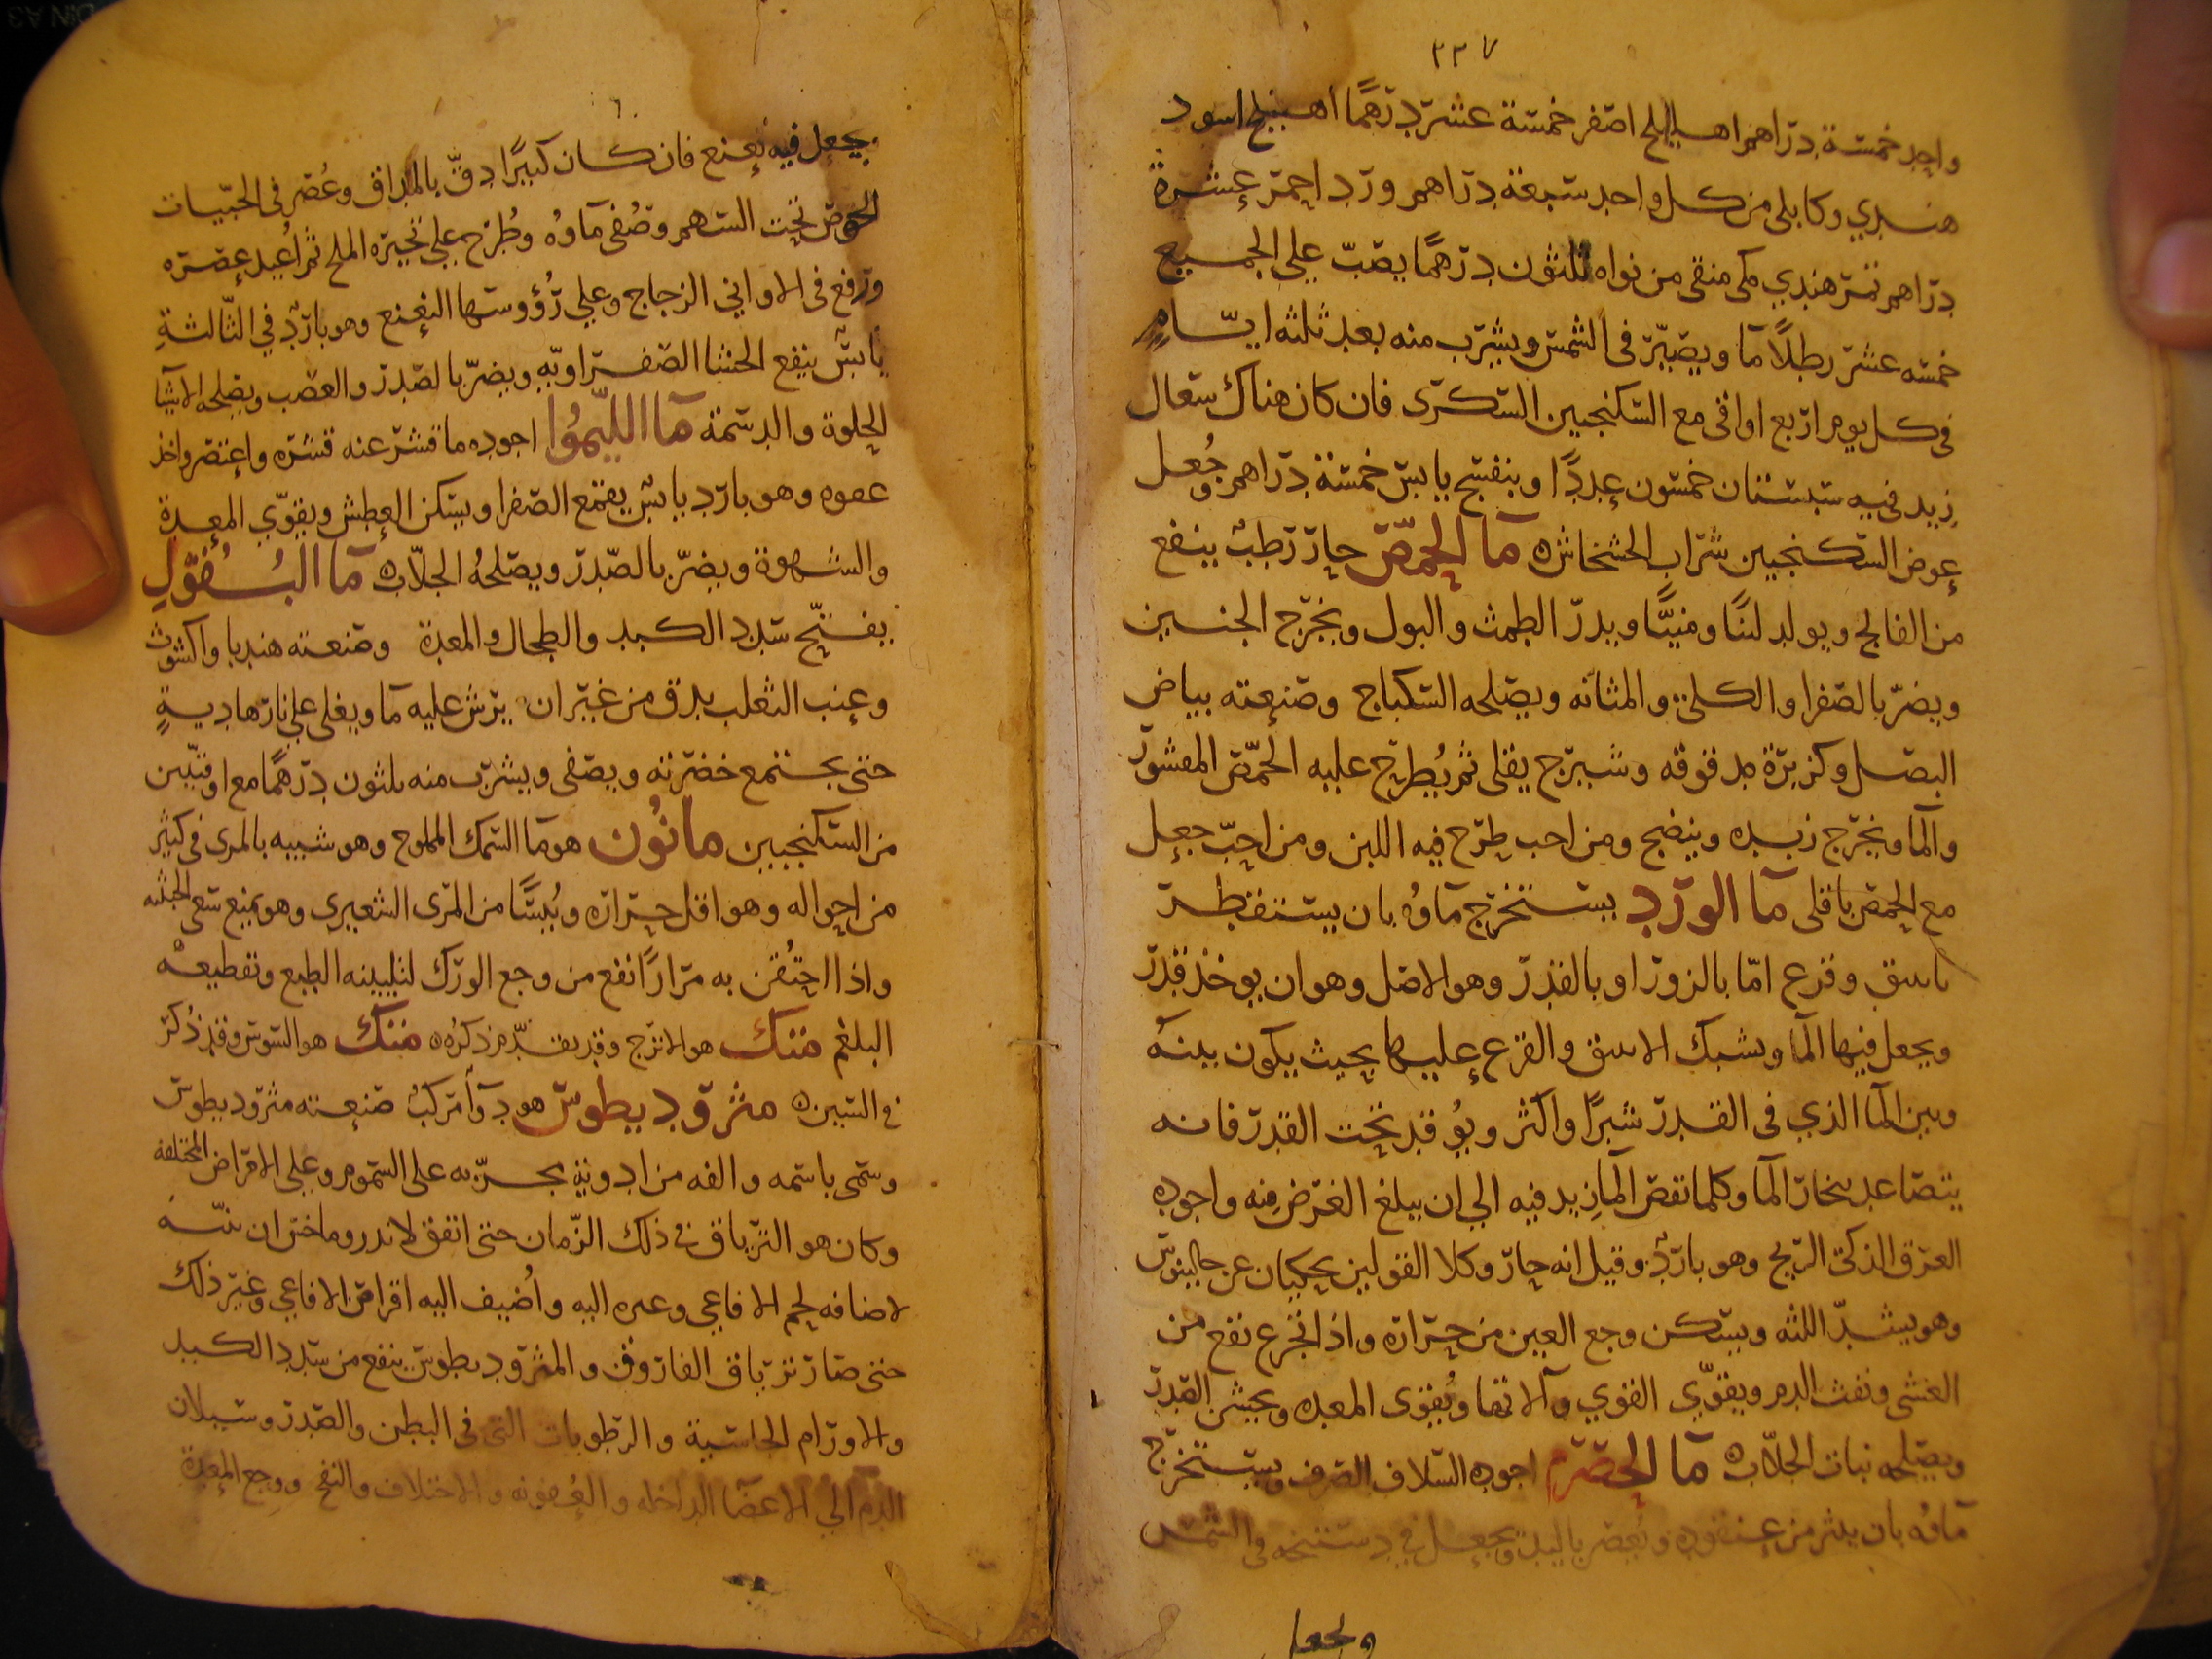 ٢٣٧
واحد خمسة دراهم اهليلج اصفر خمسة عشر درهمًا اهليلج اسود
هندي وكابلى من كل واحد سبعة دراهم ورد احمر عشرة
دراهم تمر هندي مكى منقى من نواه ثلثون درهمًا يصبّ على الجميع
خمسه عشر رطلاً ما ويصيّر فى الشمس ويشرب منه بعد ثلثه ايّامٍ
فى كل يوم اربع اواقى مع السكنجبين السكرى فان كان هناك سعال
زيد فيه سبستان خمسون عددًا وبنفسج يابس خمسة دراهم وجُعل
عوض السكنجبين شراب الخشخاش ه مآ الحِمّص حار رطبٌ ينفع
من الفالج ويولد لبنًا ومنيًّا ويدرّ الطمث والبول ويخرج الجنين
ويضرّ بالصفرا والكلى والمثانه ويصلحه السكباج وصنعته بياض
البصل وكزبرة مدقوقه وشيرج يغلى ثم يُطرح عليه الحمّص المقشور
والمآ ويخرج زبده وينضج ومن احب طرح فيه اللبن ومن احبّ جعل
مع الحمص باقلى مآ الورد يستخرج مآوُه بان يستقطر
بانبيق وقرع امّا بالزور او بالقدر وهو الاصل وهو ان يوخذ قدر
ويجعل فيها المآ ويشبك الانبيق والقرع عليها بحيث يكون بينهُ
وبين المآ الذي فى القدر شبرًا واكثر ويُوقد تحت القدر فانه
يتصاعد بخار المآ وكلما نقص المآ زيد فيه الى ان يبلغ الغرض منه واجوده
العرق الذكى الريح وهو باردٌ وقيل انه حار وكلا القولين يحكيان عن جالينوس
وهو يشدّ اللثه ويسكن وجع العين من حرارة واذا تجرع نفع من
الغشى ونفث الدم ويقوّى القوي والالات ويُقوى المعده ويخشن الصدر
ويصلحه نبات الجلّاب ه مآ الحِصرم اجوده السلاف الصرف ويستخرج
مآوُه بان ينثر من عنقوده ويُعصر باليد ويجعل فى دستنجه فى الشمس
ويجعل
يجعل فيه نعنع فان كان كبيرًا دقّ بالمداق وعُصر فى الحبّيات
الخوص تحت السهم وصُفى مآوُه وطُرح على تجيره الملح ثم اُعيد عصره
ورفع فى الاواني الزجاج وعلى رُؤوسها النعنع وهو باردٌ في الثّالثةِ
يابسٌ ينفع الحشا الصفراويّه ويضرّ بالصدر والعصب ويصلحه الاشيا
الحلوة والدسمة مآ الليّمُوا اجوده ما قشر عنه قشره واعتصر واخذ
عفوه وهو بارد يابس يقمع الصفرا ويسكن العطش ويقوّي المعدة
والشهوة ويضرّ بالصّدر ويصلحهُ الجلّاب ه مآ البُقُوّلِ
يفتّح سدد الكبد والطحال والمعدة وصنعته هندبا واكشوث
وعنب الثعلب يدق من غير ان يرش عليه مآ ويغلى على نار هاديةٍ
حتى يجتمع خضرته ويصفى ويشرب منه ثلثون درهمًا مع اوقيّتين
من السكنجبين مانُون هو مآ السمك المملوح وهو شبيه بالمرى فى كثير
من احواله وهو اقل حرارة ويُبسًا من المرّى الشعيرى وهو يمنع سعى الخبيثه
واذا احتُقن به مرارًا نفع من وجع الورك لتليينه الطبع وتقطيعهْ
البلغم متك هو الاترج وقد تقدّم ذكرُه ه متك هو السوس وقد ذُكر
فى السين ه مثروديطوس هو دوآ مركبٌ صنعته مثروديطوس
وسمى باسمه والفه من ادوية مجرّبه على السموم وعلى الاقراض المختلفه
وكان هو الترياق فى ذلك الزّمان حتى اتفق لاندروماخس ان نبّه
لاضافه لحم الافاعى وغيره اليه واُضيف اليه اقراص الافاعي وغير ذلك
حتى صار ترياق الفاروق والمثروديطوس ينفع من سدد الكبد
والاورام الجاسية والرطوبات التى فى البطن والصدر وسيلان
الدم الى الاعضآ الداخله والعُفونه والاختلاف والنفخ ووجع المعدة